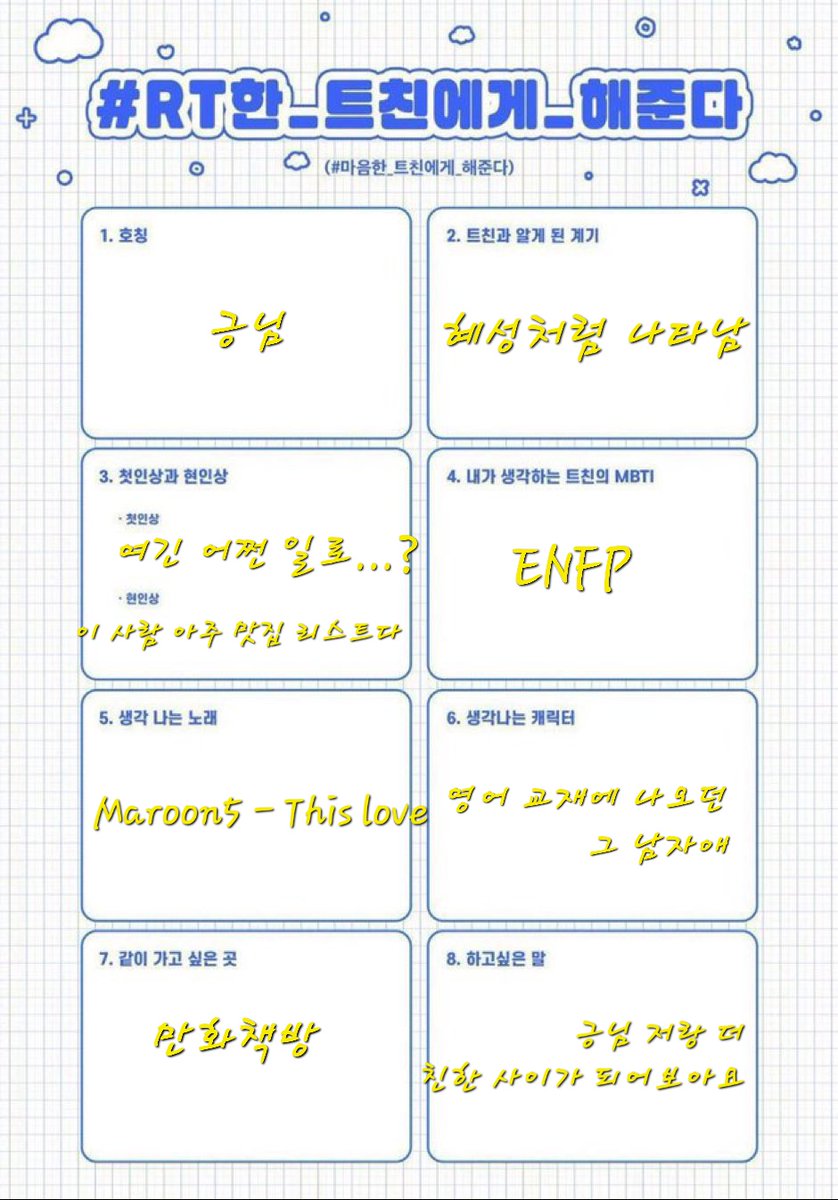 #RT한_트친에게_해준다
(#마음한_트친에게_해준다)
1. 호칭
긍님
2. 트친과 알게 된 계기
혜성처럼 나타남
3. 첫인상과 현인상
· 첫인상
여긴 어쩐 일로...?
· 현인상
이 사람 아주 맛집 리스트다
4. 내가 생각하는 트친의 MBTI
ENFP
5. 생각 나는 노래
Maroon5 - This love
6. 생각나는 캐릭터
영어 교재에 나오던
그 남자애
7. 같이 가고 싶은 곳
만화책방
8. 하고싶은 말
긍님 저랑 더
친한 사이가 되어보아요